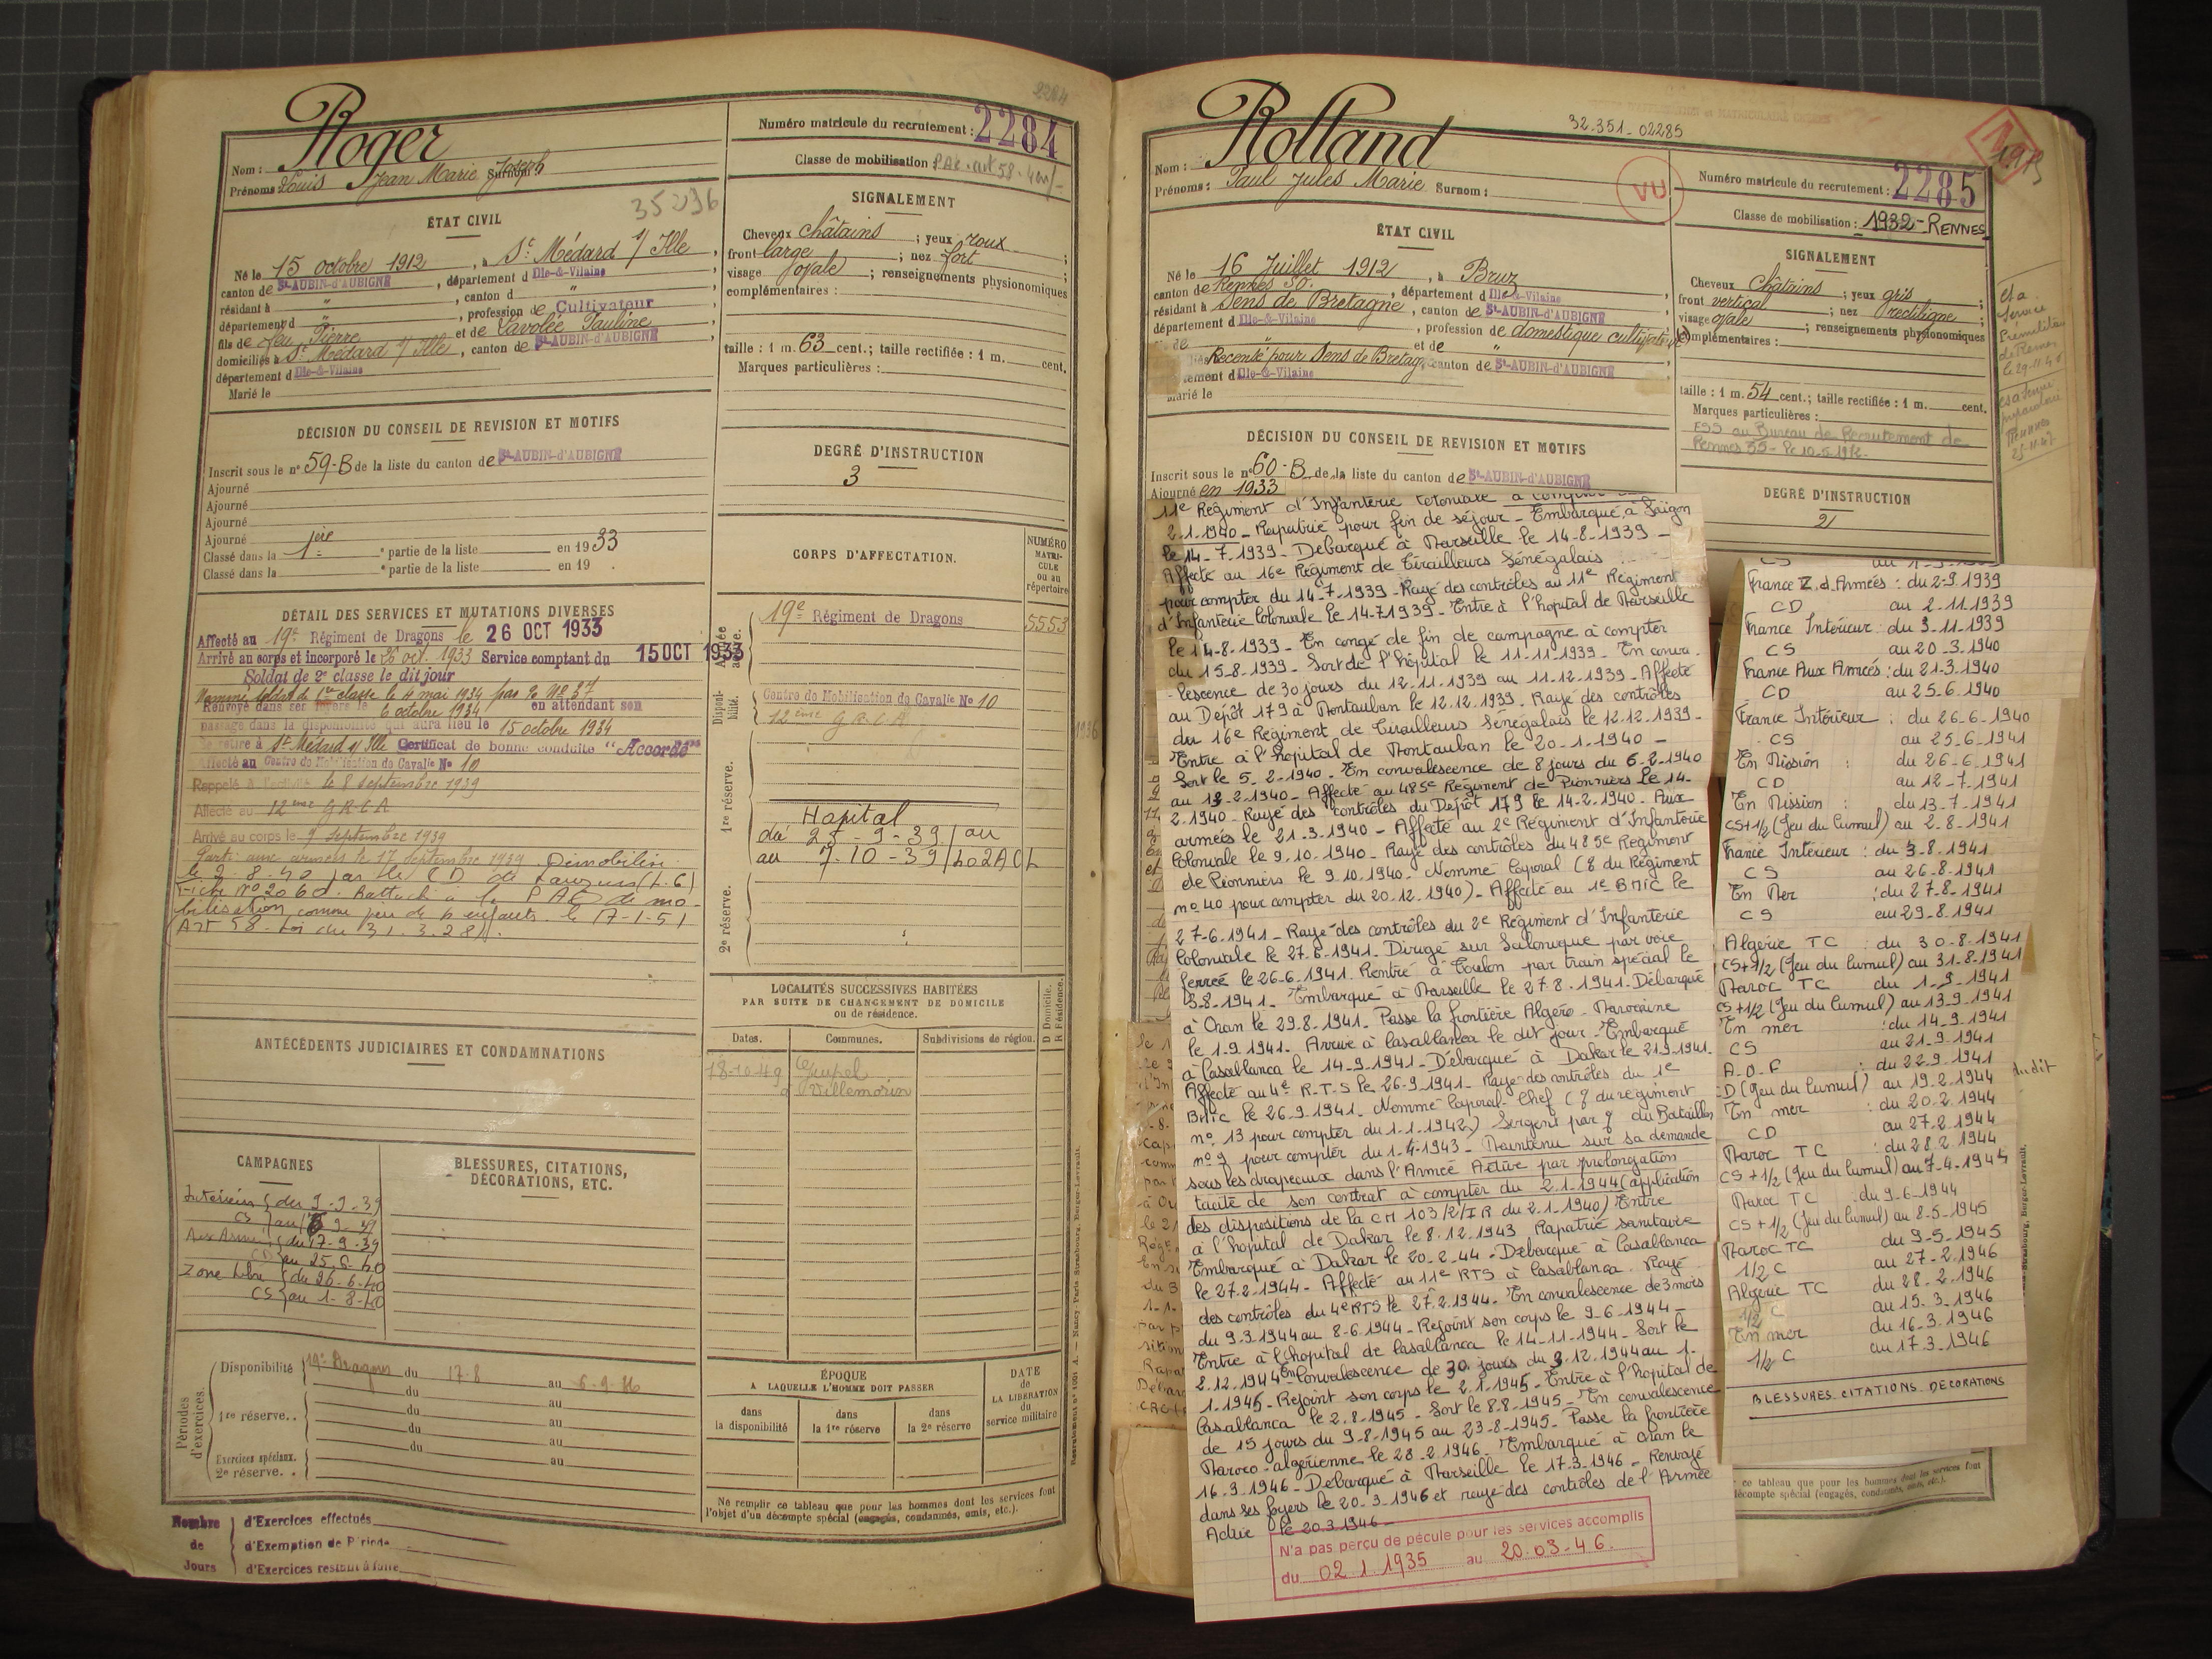 2284
Roger
Nom :
Prénoms : Louis Jean Marie Joseph Surnom :
Numéro matricule du recrutement : 2284
Classe de mobilisation PAC. art 58. 4 en/-
35236
ÉTAT CIVIL
Né le 15 octobre 1912, à St Médard s/ Ille,
canton de St-AUBIN-d'AUBIGNÉ, département d Ille-&-Vilaine
résidant à ", canton d "
département d ", profession de Cultivateur
fils de feu Pierre et de Lavolée Pauline
domiciliés à St Médard s/ Ille, canton de St-AUBIN-d'AUBIGNÉ
département d Ille-&-Vilaine
Marié le
SIGNALEMENT
Cheveux châtains ; yeux roux
front large ; nez fort ;
visage ovale ; renseignements physionomiques
complémentaires :
taille : 1 m. 63 cent.; taille rectifiée : 1 m. cent.
Marques particulières :
DÉCISION DU CONSEIL DE REVISION ET MOTIFS
Inscrit sous le n° 59-B de la liste du canton de St-AUBIN-d'AUBIGNÉ
Ajourné
Ajourné
Ajourné
Ajourné
Classé dans la 1ère partie de la liste en 1933
Classé dans la e partie de la liste en 19 .
DEGRÉ D'INSTRUCTION
3
DÉTAIL DES SERVICES ET MUTATIONS DIVERSES
Affecté au 19e Régiment de Dragons le 26 OCT 1933
Arrivé au corps et incorporé le 26 oct. 1933 Service comptant du 15 OCT 1933
Soldat de 2e classe le dit jour
Nommé soldat de 1re classe le 4 mai 1934 par O No 37
Renvoyé dans ses foyers le 6 octobre 1934 en attendant son
passage dans la disponibilité qui aura lieu le 15 octobre 1934
Se retire à St Médard s/ Ille Certificat de bonne conduite "Accordé"
Affecté au Centre de Mobilisation de Cavalie No 10
Rappelé à l'activité le 8 septembre 1939
Affecté au 12ème G R C A
Arrivé au corps le 9 septembre 1939
Parti aux armées le 17 septembre 1939. Démobilisé
le 2.8.40 par le CD de Lauzun (L.G)
Fiche No 206 d. Rattaché à la PAC de mo-
bilisation comme père de 4 enfants le 17-1-51
(Art 58. Loi du 31.3.28).
CORPS D'AFFECTATION.
NUMÉRO MATRI-CULE ou au répertoire
Armée active.
19e Régiment de Dragons 5553
Disponi-bilité.
Centre de Mobilisation de Cavalie No 10
12ème G R C A
1re réserve.
Hopital
du 25-9-39 au
au 7-10-39 402 A C L
2e réserve.
LOCALITÉS SUCCESSIVES HABITÉES
PAR SUITE DE CHANGEMENT DE DOMICILE
ou de résidence.
D Domicile. R Résidence.
Dates. Communes. Subdivisions de région.
18-10-49 Gripel
Villemorin
ANTÉCÉDENTS JUDICIAIRES ET CONDAMNATIONS
CAMPAGNES
Intérieur du 9-9-39
CS au 16 9-39
Aux Armées du 17-9-39
CD au 25-6-40
Zone libre du 26-6-40
CS au 1-8-40
BLESSURES, CITATIONS,
DÉCORATIONS, ETC.
Périodes d'exercices.
Disponibilité 19e Dragons du 17-8 au 6-9-36
du au
1re réserve.. du au
du au
du au
Exercices spéciaux. au
2e réserve. .
ÉPOQUE
A LAQUELLE L'HOMME DOIT PASSER
dans la disponibilité
dans la 1re réserve
dans la 2e réserve
DATE de LA LIBÉRATION du service militaire
Ne remplir ce tableau que pour les hommes dont les services font
l'objet d'un décompte spécial (engagés, condamnés, omis, etc.).
Nombre de Jours
d'Exercices effectués
d'Exemption de Période
d'Exercices restant à faire
32-351-02285
Rolland
Nom :
Prénoms : Paul Jules Marie Surnom :
VU
Numéro matricule du recrutement : 2285
Classe de mobilisation : 1932-RENNES
ÉTAT CIVIL
Né le 16 Juillet 1912, à Bruz
canton de Rennes S.O., département d Ille-&-Vilaine
résidant à Sens de Bretagne, canton de St-AUBIN-d'AUBIGNÉ
département d Ille-&-Vilaine, profession de domestique cultivateur
et de "
Recensé pour Sens de Bretagne canton de St-AUBIN-d'AUBIGNÉ
Ille-&-Vilaine
Marié le
SIGNALEMENT
Cheveux Châtains ; yeux gris
front vertical ; nez rectiligne ;
visage ovale ; renseignements physionomiques
complémentaires :
taille : 1 m. 54 cent.; taille rectifiée : 1 m. cent.
Marques particulières :
ESS au Bureau de Recrutement de
DÉCISION DU CONSEIL DE REVISION ET MOTIFS
Inscrit sous le n° 60-B de la liste du canton de St-AUBIN-d'AUBIGNÉ
Ajourné en 1933
DEGRÉ D'INSTRUCTION
2
11e Régiment d'Infanterie Coloniale à compter du
2-1-1940 - Rapatrié pour fin de séjour - Embarqué à Saïgon
le 14-7-1939 - Débarqué à Marseille le 14-8-1939 -
Affecté au 16e Régiment de Tirailleurs Sénégalais
pour compter du 14-7-1939 - Rayé des contrôles au 11e Régiment
d'Infanterie Coloniale le 14-7-1939 - Entré à l'hopital de Marseille
le 14-8-1939 - En congé de fin de campagne à compter
du 15-8-1939 - Sort de l'hôpital le 11-11-1939 - En conva-
lescence de 30 jours du 12-11-1939 au 11-12-1939 - Affecté
au Dépôt 179 à Montauban le 12-12-1939 - Rayé des contrôles
du 16e Régiment de Tirailleurs Sénégalais le 12-12-1939 -
Entre à l'hopital de Montauban le 20-1-1940 -
Sort le 5-2-1940 - En convalescence de 8 jours du 6-2-1940
au 13-2-1940 - Affecté au 485e Régiment de Pionniers le 14-
2-1940 - Rayé des contrôles du Dépôt 179 le 14-2-1940 - Aux
armées le 21-3-1940 - Affecté au 2e Régiment d'Infanterie
Coloniale le 9-10-1940 - Rayé des contrôles du 485e Régiment
de Pionniers le 9-10-1940 - Nommé Caporal (O du Régiment
no 40 pour compter du 20-12-1940) - Affecté au 1e BMIC le
27-6-1941 - Rayé des contrôles du 2e Régiment d'Infanterie
Coloniale le 27-6-1941 - Dirigé sur Salonique par voie
ferrée le 26-6-1941. Rentré à Toulon par train spécial le
3-8-1941 - Embarqué à Marseille le 27-8-1941 - Débarqué
à Oran le 29-8-1941 - Passe la frontière Algéro - Marocaine
le 1-9-1941 - Arrivé à Casablanca le dit jour - Embarqué
à Casablanca le 14-9-1941 - Débarqué à Dakar le 21-9-1941.
Affecté au 4e R.T.S le 26-9-1941 - Rayé des contrôles du 1e
BMIC le 26-9-1941 - Nommé Caporal-Chef (O du régiment
no 13 pour compter du 1-1-1942) Sergent par O du Bataillon
no 9 pour compter du 1-4-1943 - Maintenu sur sa demande
sous les drapeaux dans l'Armée Active par prolongation
tacite de son contrat à compter du 2-1-1944 (application
des dispositions de la CM 103/2/IR du 2-1-1940) Entre
à l'hopital de Dakar le 8-12-1943 Rapatrié sanitaire
Embarqué à Dakar le 20-2-44 - Débarqué à Casablanca
le 27-2-1944 - Affecté au 11e RTS à Casablanca - Rayé
des contrôles du 4e RTS le 27-2-1944 - En convalescence de 3 mois
du 9-3-1944 au 8-6-1944 - Rejoint son corps le 9-6-1944 -
Entre à l'hopital de Casablanca le 14-11-1944 - Sort le
2-12-1944 En Convalescence de 30 jours du 3-12-1944 au 1-
1-1945 - Rejoint son corps le 2-1-1945 - Entre à l'hopital de
Casablanca le 2-8-1945 - Sort le 8-8-1945 - En convalescence
de 15 jours du 9-8-1945 au 23-8-1945 - Passe la frontière
Maroco-algérienne le 28-2-1946 - Embarqué à Oran le
16-3-1946 - Débarqué à Marseille le 17-3-1946 - Renvoyé
dans ses foyers le 20-3-1946 et rayé des contrôles de l'Armée
Active le 20-3-1946 -
N'a pas perçu de pécule pour les services accomplis
du 02.1.1935 au 20.03-46.
France Z. d. Armées : du 2-9-1939
CD au 2-11-1939
France Intérieur : du 3-11-1939
CS au 20-3-1940
France Aux Armées : du 21-3-1940
CD au 25-6-1940
France Intérieur : du 26-6-1940
CS au 25-6-1941
En Mission : du 26-6-1941
CD au 12-7-1941
En Mission : du 13-7-1941
CS+1/2 (Jeu du Cumul) au 2-8-1941
France Intérieur : du 3-8-1941
CS au 26-8-1941
En Mer : du 27-8-1941
CS au 29-8-1941
Algérie TC : du 30-8-1941
CS+1/2 (Jeu du Cumul) au 31-8-1941
Maroc TC du 1-9-1941
CS+1/2 (Jeu du Cumul) au 13-9-1941
En mer : du 14-9-1941
CS au 21-9-1941
A.O.F : du 22-9-1941
CD (Jeu du Cumul) au 19-2-1944
En mer : du 20-2-1944
CD au 27-2-1944
Maroc TC : du 28-2-1944
CS+1/2 (Jeu du Cumul) au 7-4-1944
Maroc TC : du 9-6-1944
CS+1/2 (Jeu du Cumul) au 8-5-1945
Maroc TC du 9-5-1945
1/2 C au 27-2-1946
Algérie TC du 28-2-1946
1/2 C au 15-3-1946
En mer du 16-3-1946
1/2 C au 17-3-1946
BLESSURES-CITATIONS-DECORATIONS
ce tableau que pour les hommes dont les services font
décompte spécial (engagés, condamnés, omis, etc.).